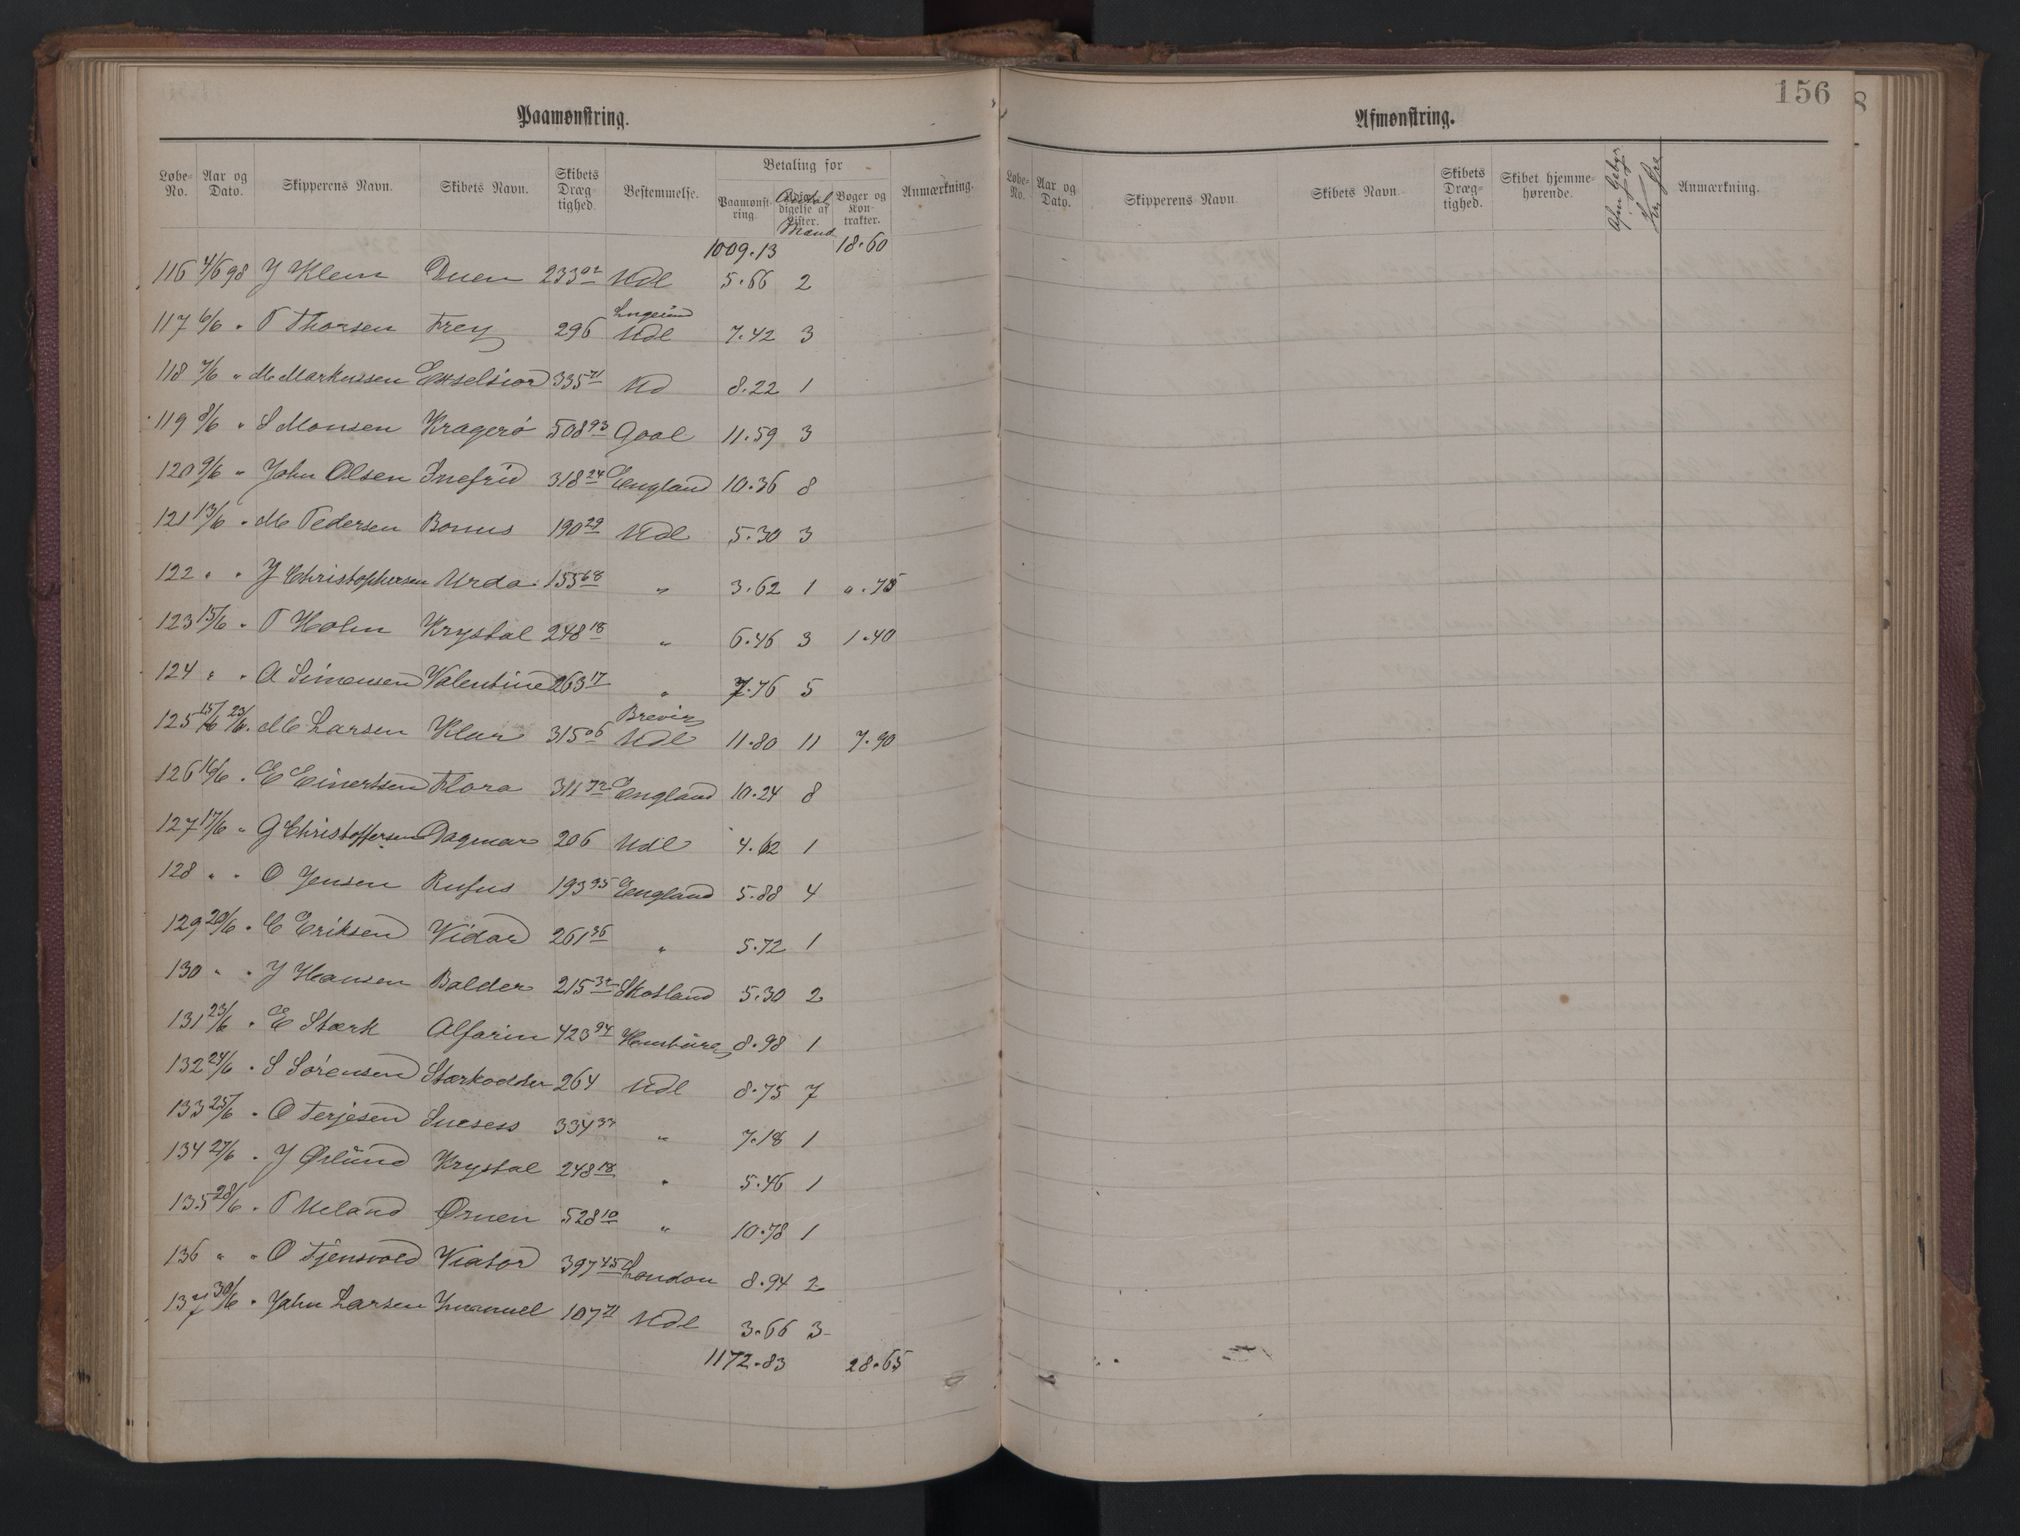 156
Paamønstring.
Løbe-No. Aar og Dato. Skipperens Navn. Skibets Navn. Skibets Dræg-tighed. Bestemmelse. Betaling for Paamønst-ring. Antal Mand Bøger og Kon-trakter. Anmærkning.
1009.13 18.60
116 4/6 98 J Klem Duen 233 92 Udl 5.66 2
117 6/6 " T Thorsen Frey 296 Udl 7.42 3
118 7/6 " M Markussen Exselsior 335 71 Ud 8.22 1
119 8/6 " S Monsen Kragerø 508 93 Goole 11.59 3
120 9/6 " John Olsen Inefrid 318 24 England 10.36 8
121 13/6 " M Pedersen Bonus 190 29 Udl 5.30 3
122 " " J Christophersen Urda 155 68 " 3.62 1 0.75
123 15/6 " T Holm Krystal 248 18 " 6.46 3 1.40
124 " " A Simensen Valentine 263 17 " 7.76 5
Brevig
125 15/6 23/6 " M Larsen Klar 315 06 Udl 11.80 11 7.90
126 16/6 " E Einertsen Flora 311 72 England 10.24 8
127 17/6 " G Christoffersen Dagmar 206 Udl 4.62 1
128 " " O Jensen Rufus 193 95 England 5.88 4
129 20/6 " C Eriksen Vidar 261 36 " 5.72 1
130 " " J Hansen Balder 215 32 Skotland 5.30 2
131 23/6 " E Stærk Alfarin 423 94 Hamburg 8.98 1
132 24/6 " S Sørensen Stærkodder 264 Udl 8.75 7
133 25/6 " O Terjesen Sucsess 334 33 " 7.18 1
134 27/6 " J Ørlund Krystal 248 18 " 5.46 1
135 28/6 " T Meland Ørnen 528 10 " 10.78 1
136 " " O Tjensvold Viator 397 45 London 8.94 2
137 30/6 " John Larsen Imanuel 107 71 Udl 3.66 3
1172.83 28.65
Afmønstring.
Løbe-No. Aar og Dato. Skipperens Navn Skibets Navn. Skibets Dræg-tighed. Skibet hjemme-hørende. Anmærkning.